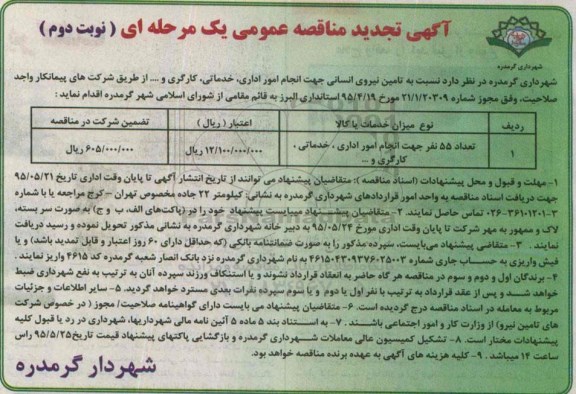 آگهی تجدید مناقصه عمومی یک مرحله ای ( نوبت دوم )
شهرداری گرمدره
شهرداری گرمدره در نظر دارد نسبت به تامین نیروی انسانی جهت انجام امور اداری، خدماتی، کارگری و .... از طریق شرکت های پیمانکار واجد
صلاحیت، وفق مجوز شماره ۲۱/۱/۲۰۳۰۹ مورخ ۹۵/۴/۱۹ استانداری البرز به قائم مقامی از شورای اسلامی شهر گرمدره اقدام نماید :
ردیف نوع میزان خدمات یا کالا اعتبار ( ریال ) تضمین شرکت در مناقصه
۱ تعداد ۵۵ نفر جهت انجام امور اداری ، خدماتی ، کارگری و ... ۱۲/۱۰۰/۰۰۰/۰۰۰ ۶۰۵/۰۰۰/۰۰۰ ریال
۱- مهلت و قبول و محل پیشنهادات (اسناد مناقصه ): متقاضیان پیشنهاد می توانند از تاریخ انتشار آگهی تا پایان وقت اداری تاریخ ۹۵/۰۵/۲۱
جهت دریافت اسناد مناقصه به واحد امور قراردادهای شهرداری گرمدره به نشانی: کیلومتر ۲۲ جاده مخصوص تهران –کرج مراجعه یا با شماره
۳-۳۶۱۰۱۲۰۱-۰۲۶ تماس حاصل نمایند. ۲- متقاضیان پیشنهاد میبایست پیشنهاد خود را در (پاکت‌های الف، ب و ج) به صورت سر بسته،
لاک و ممهور به مهر شرکت تا پایان وقت اداری مورخ ۹۵/۰۵/۲۴ به دبیر خانه شهرداری گرمدره به نشانی مذکور تحویل نموده و رسید دریافت
نمایند . ۳- متقاضی پیشنهاد می‌بایست، سپرده مذکور را به صورت ضمانتنامه بانکی (که حداقل دارای ۶۰ روز اعتبار و قابل تمدید باشد) و یا
فیش واریزی به حساب جاری شماره ۴۶۱۵۰۴۳۰۹۳۷۶-۲۵۰۰۳ به نام شهرداری گرمدره نزد بانک انصار شعبه گرمدره کد ۴۶۱۵ واریز نمایند .
۴- برندگان اول و دوم و سوم در مناقصه هر گاه حاضر به انعقاد قرارداد نشوند و یا استنکاف ورزند سپرده آنان به ترتیب به نفع شهرداری ضبط
خواهد شد و پس از عقد قرارداد به ترتیب با نفر اول یا دوم و یا سوم سپرده نفرات بعدی مسترد خواهد گردید. ۵- سایر اطلاعات و جزئیات
مربوط به معامله در اسناد مناقصه درج گردیده است. ۶- متقاضیان پیشنهاد می بایست دارای گواهینامه صلاحیت/ مجوز ( در خصوص شرکت
های تامین نیرو) از وزارت کار و امور اجتماعی باشند. ۷- به استناد بند ۵ ماده ۵ آئین نامه مالی شهرداریها، شهرداری در رد یا قبول کلیه
پیشنهادات مختار است. ۸- تشکیل کمیسیون عالی معاملات شهرداری گرمدره و بازگشایی پاکتهای پیشنهاد قیمت تاریخ ۹۵/۵/۲۵ راس
ساعت ۱۴ میباشد . ۹- کلیه هزینه های آگهی به عهده برنده مناقصه خواهد بود.
شهردار گرمدره